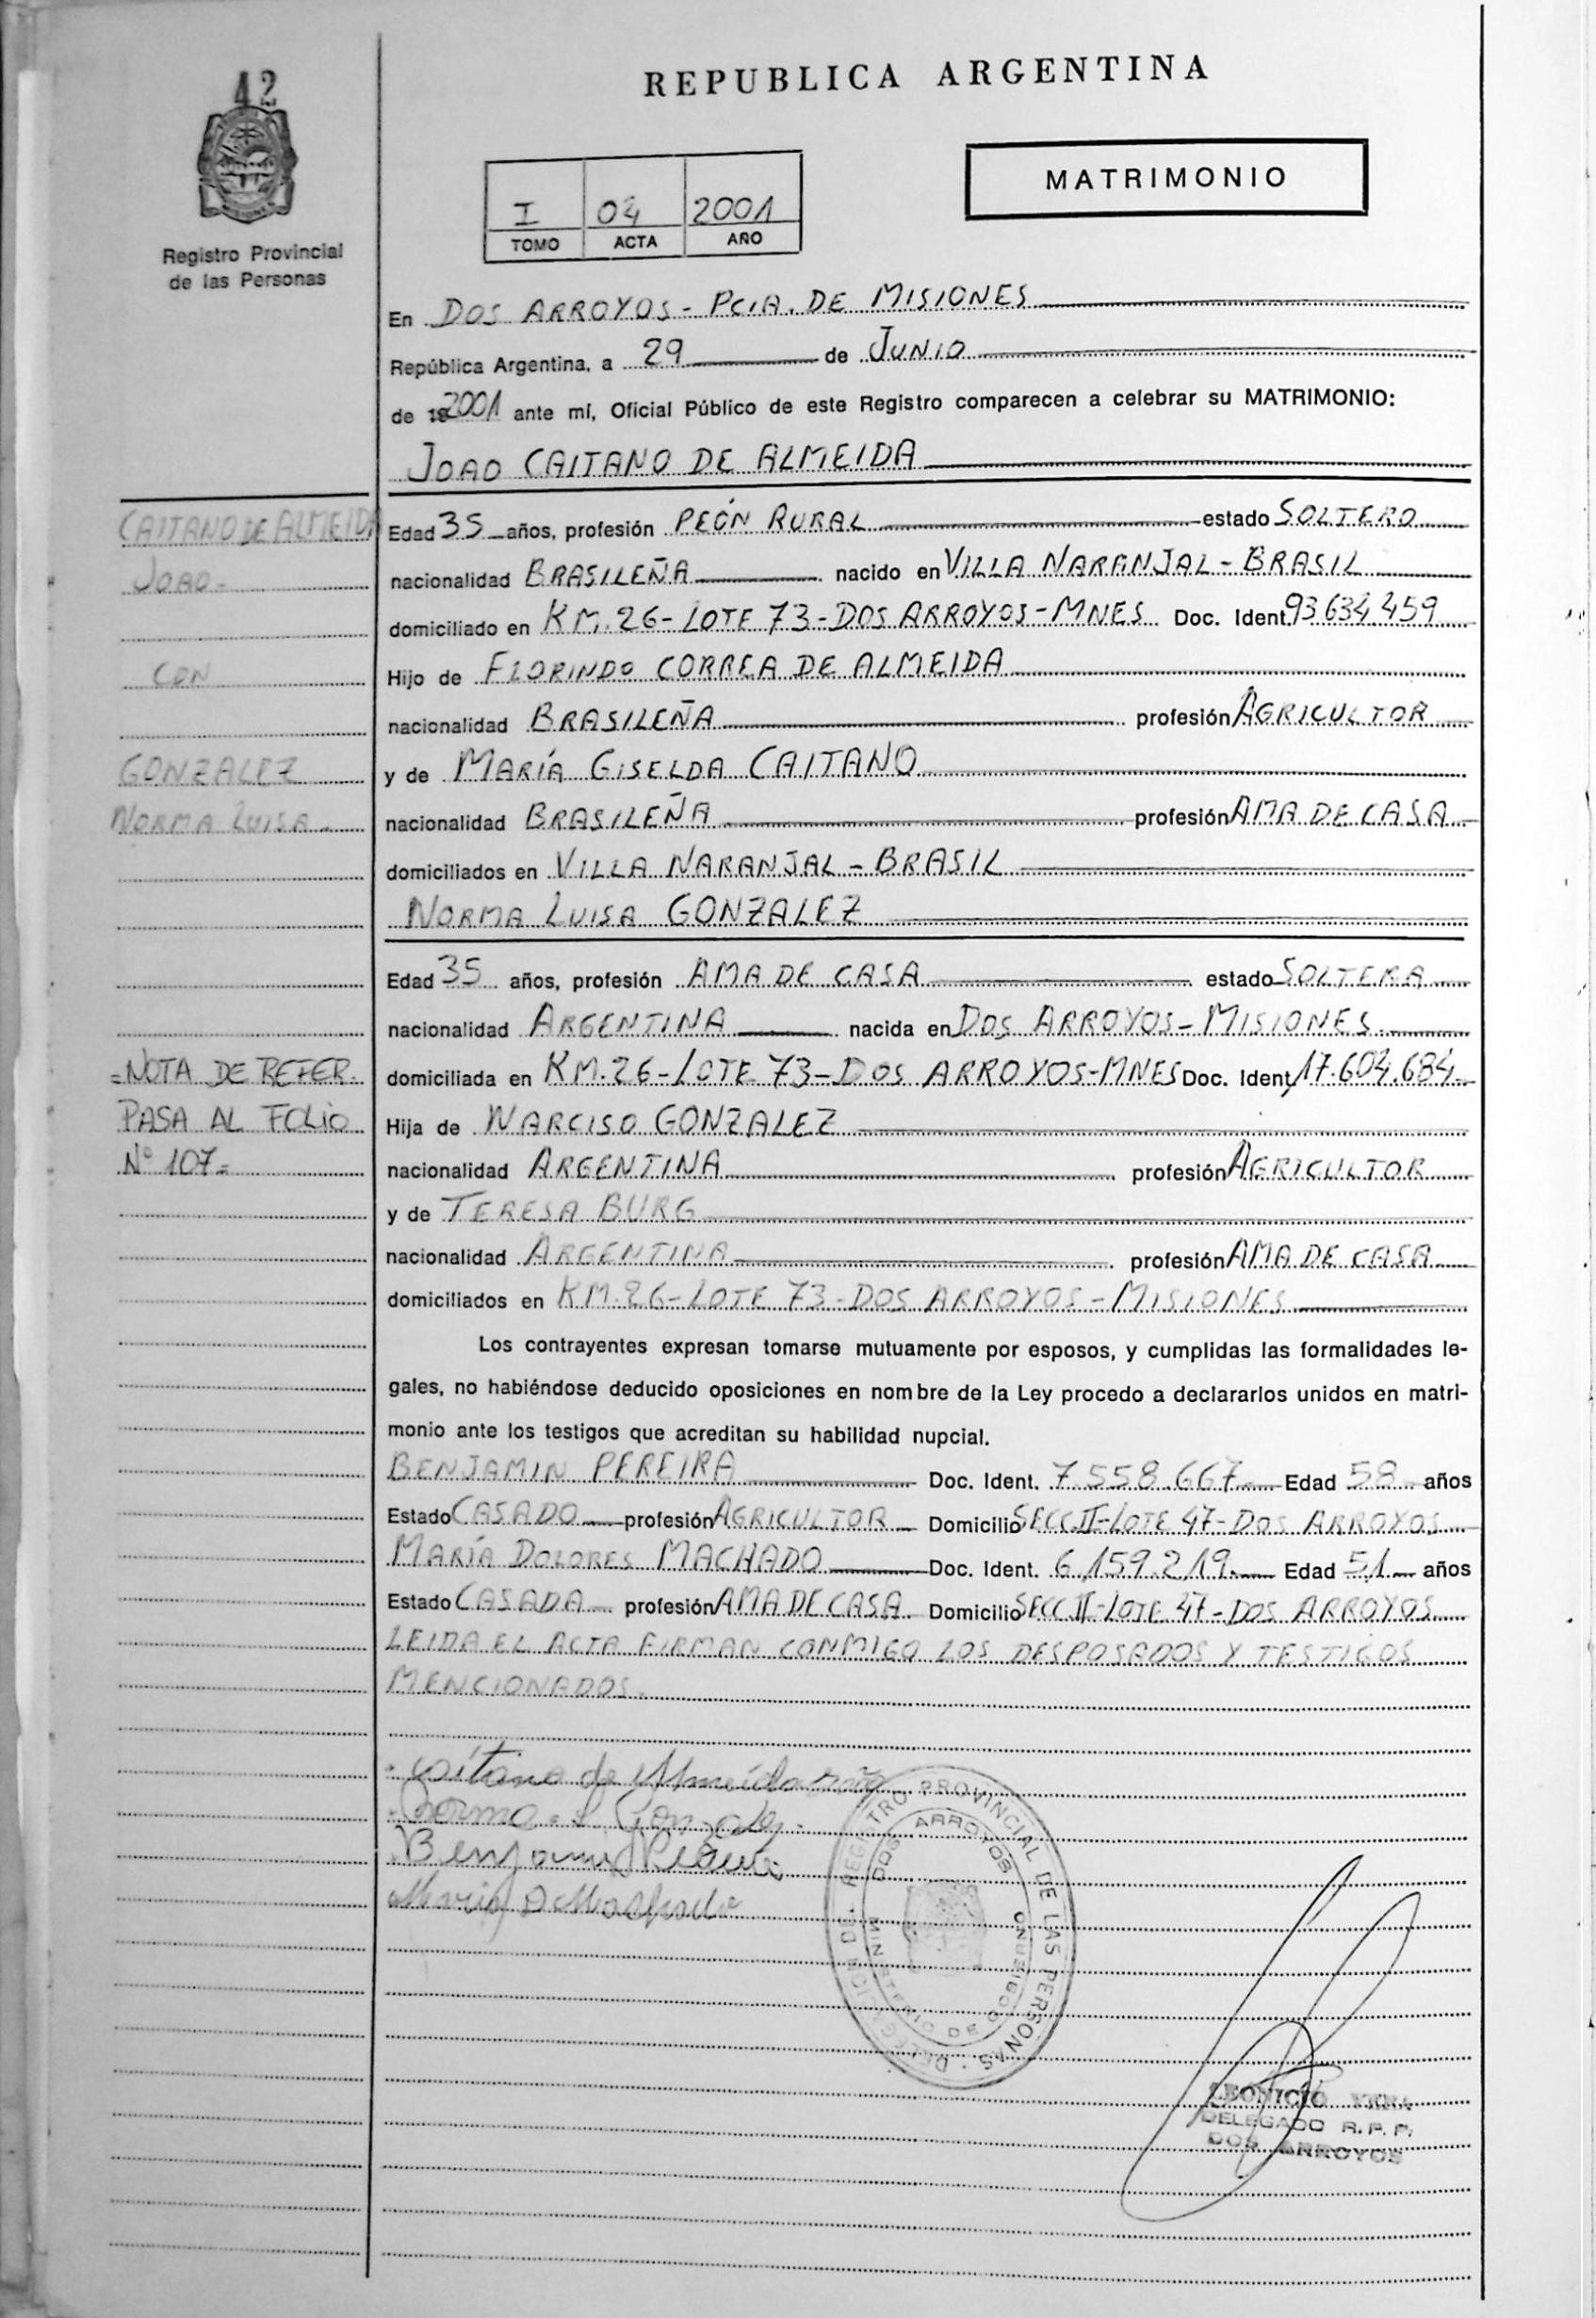 42
REPUBLICA ARGENTINA
MATRIMONIO
I 04 2001
TOMO ACTA AÑO
Registro Provincial
de las Personas
En DOS ARROYOS - PCIA. DE MISIONES
República Argentina, a 29 de JUNIO
de 192001 ante mí, Oficial Público de este Registro comparecen a celebrar su MATRIMONIO:
JOAO CAITANO DE ALMEIDA
CAITANO DE ALMEIDA
JOAO-
CON
GONZALEZ
NORMA LUISA-
=NOTA DE REFER.
PASA AL FOLIO
Nº 107=
Edad 35 años, profesión PEÓN RURAL estado SOLTERO
nacionalidad BRASILEÑA nacido en VILLA NARANJAL - BRASIL
domiciliado en KM. 26 - LOTE 73 - DOS ARROYOS - MNES Doc. Ident. 93.634.459
Hijo de FLORINDO CORREA DE ALMEIDA
nacionalidad BRASILEÑA profesión AGRICULTOR
y de MARÍA GISELDA CAITANO
nacionalidad BRASILEÑA profesión AMA DE CASA
domiciliados en VILLA NARANJAL - BRASIL
NORMA LUISA GONZALEZ
Edad 35 años, profesión AMA DE CASA estado SOLTERA
nacionalidad ARGENTINA nacida en DOS ARROYOS - MISIONES
domiciliada en KM. 26 - LOTE 73 - DOS ARROYOS - MNES Doc. Ident. 17.604.684
Hija de NARCISO GONZALEZ
nacionalidad ARGENTINA profesión AGRICULTOR
y de TERESA BURG
nacionalidad ARGENTINA profesión AMA DE CASA
domiciliados en KM. 26 - LOTE 73 - DOS ARROYOS - MISIONES
Los contrayentes expresan tomarse mutuamente por esposos, y cumplidas las formalidades le-
gales, no habiéndose deducido oposiciones en nombre de la Ley procedo a declararlos unidos en matri-
monio ante los testigos que acreditan su habilidad nupcial.
BENJAMIN PEREIRA Doc. Ident. 7.558.667 Edad 58 años
Estado CASADO profesión AGRICULTOR Domicilio SECC. II - LOTE 47 - DOS ARROYOS
MARÍA DOLORES MACHADO Doc. Ident. 6.159.219 Edad 51 años
Estado CASADA profesión AMA DE CASA Domicilio SECC II - LOTE 47 - DOS ARROYOS
LEIDA EL ACTA FIRMAN CONMIGO LOS DESPOSADOS Y TESTIGOS
MENCIONADOS.
Caitano de Almeida João
Norma L Gonzalez
Benjamin Pereira
Maria D Machado
DELEGACION DE REGISTRO PROVINCIAL DE LAS PERSONAS
DOS ARROYOS
MINISTERIO DE GOBIERNO
LEONICIO
DELEGADO R.P.P.
DOS ARROYOS